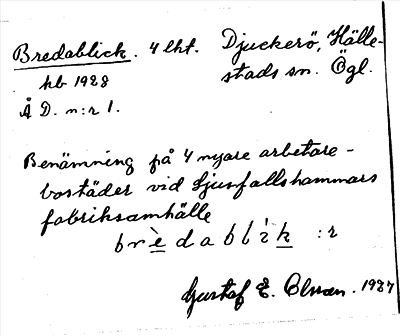 Bredablick. 4 lht. Djuckerö, Hälle-
kb 1928 stads sn. Ögl.
Å D. n:r 1.
Benämning på 4 nyare arbetare-
bostäder vid Ljusfallshammars
fabriksamhälle
brèdablìk :r
Gustaf E. Olsson. 1927